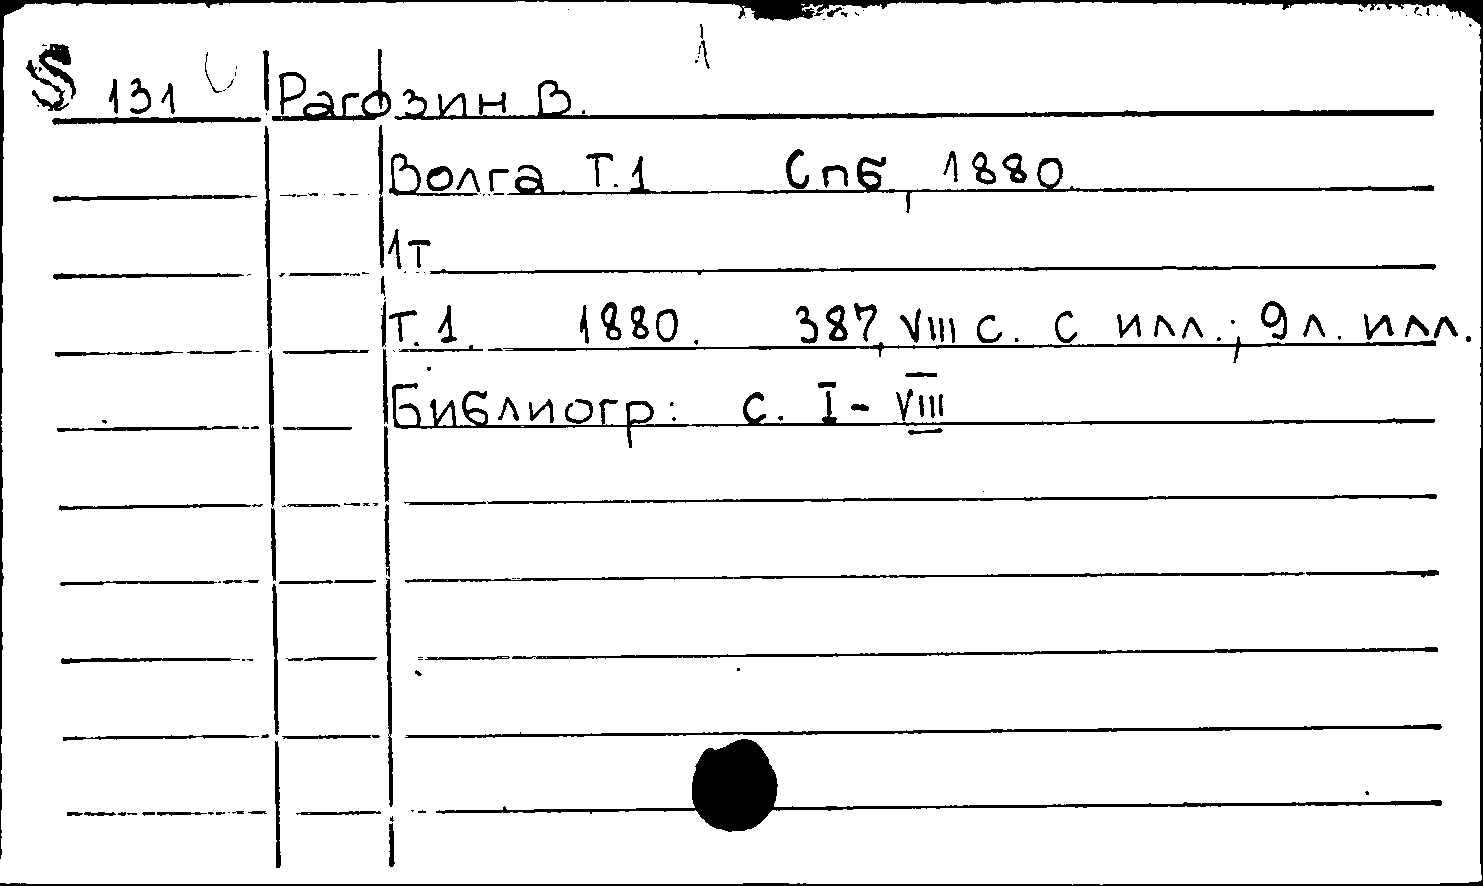 1
S 131 Рагозин В.
Волга Т.1 Спб, 1880
1т
Т.1. 1880. 387, VIII с. с илл.; 9л. илл.
Библиогр: с. I - VIII